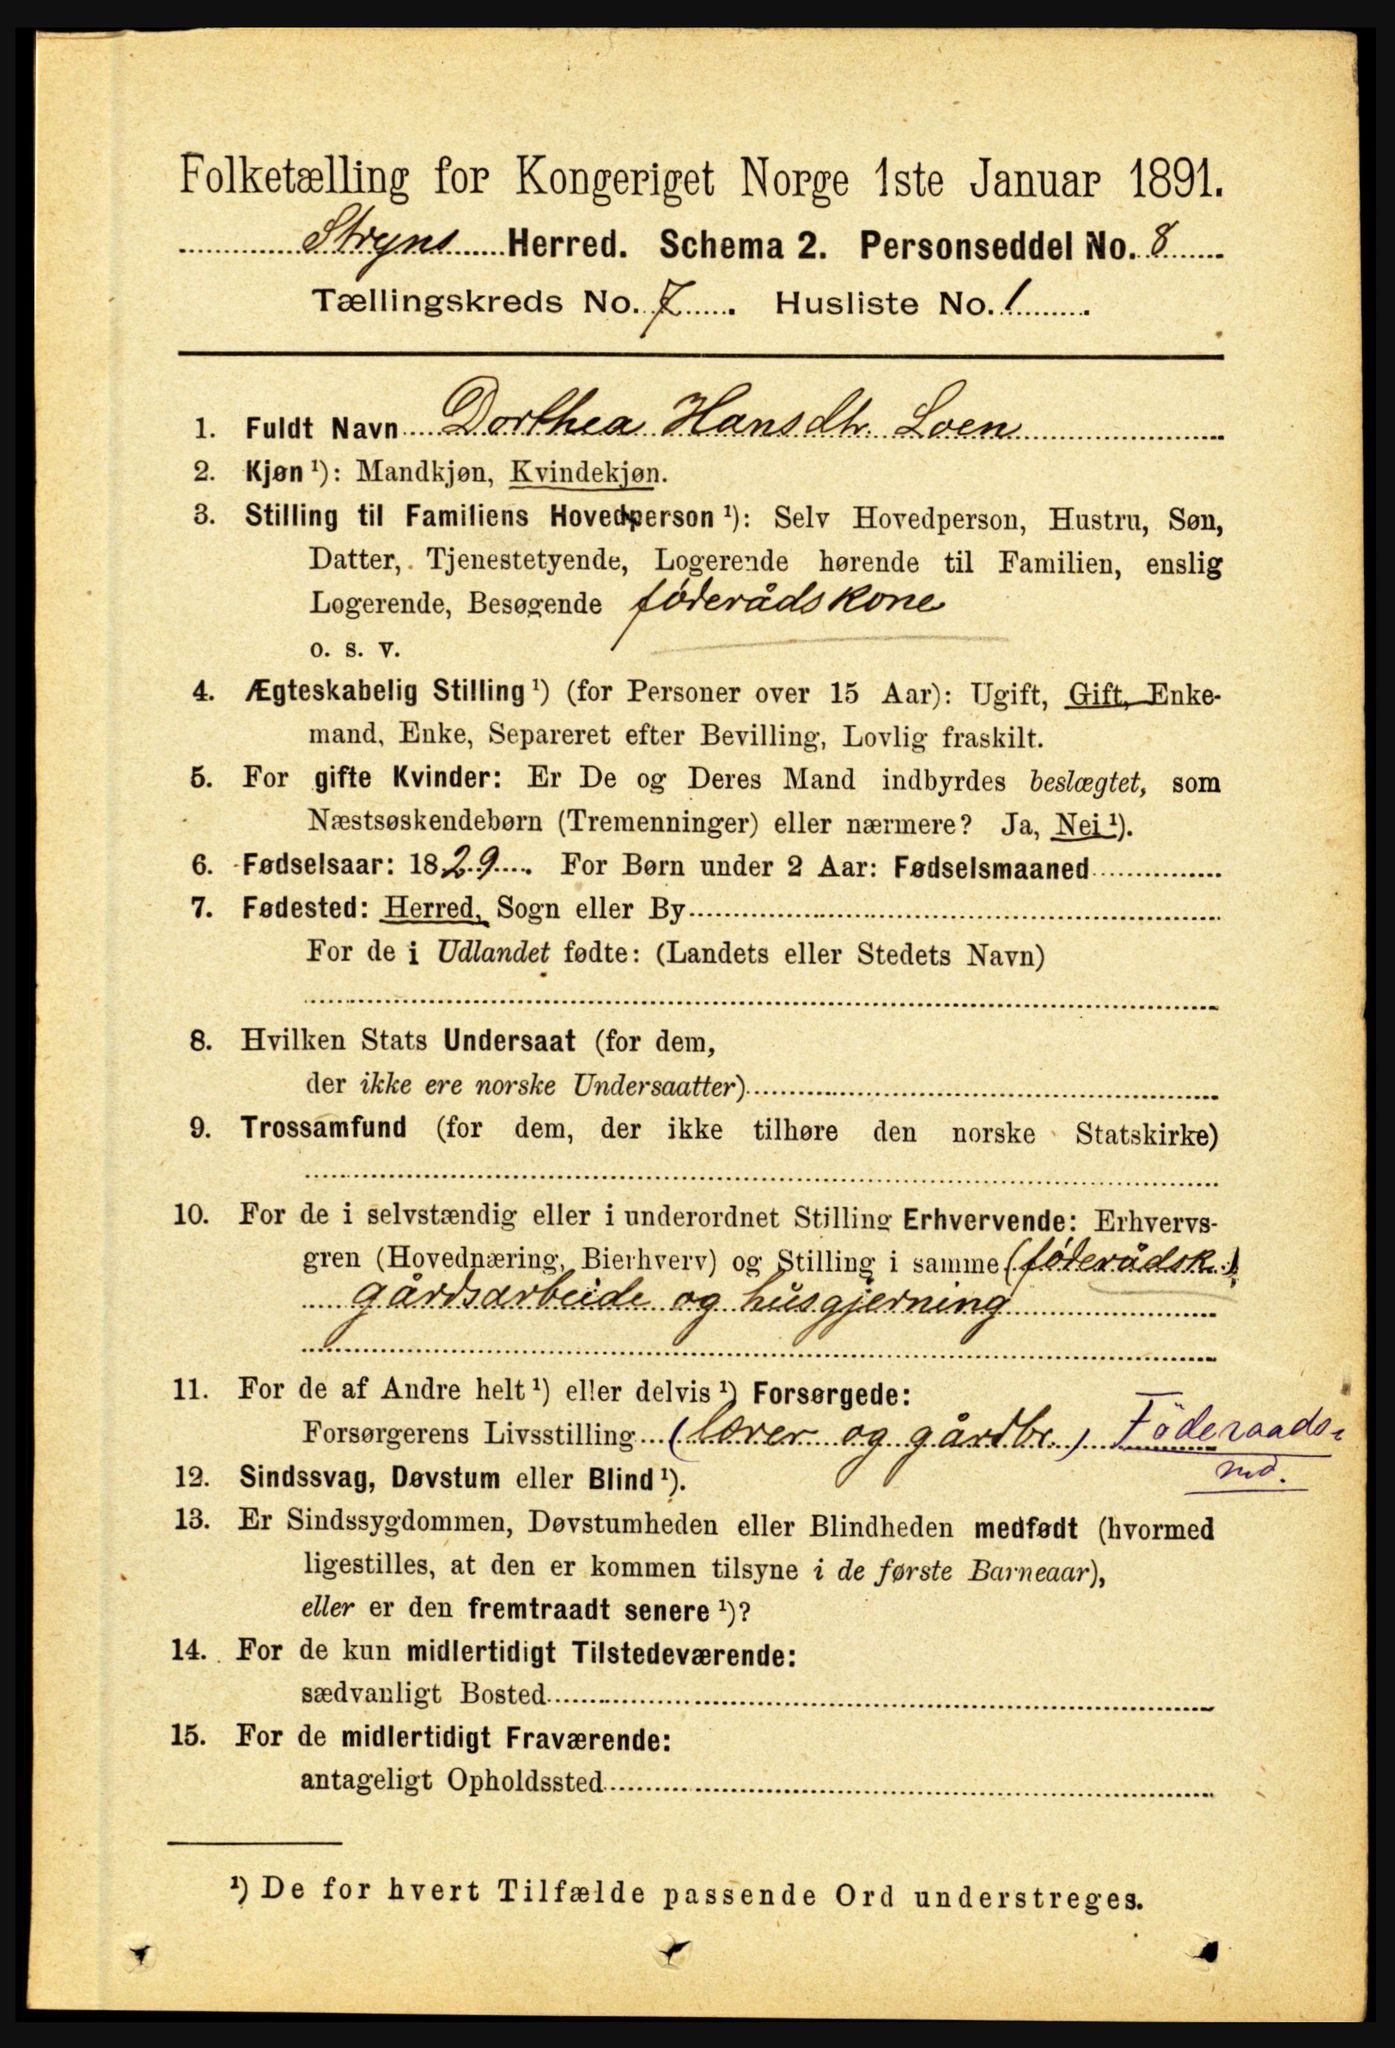 Folketælling for Kongeriget Norge 1ste Januar 1891.
Stryns Herred. Schema 2. Personseddel No. 8
Tællingskreds No. 7. Husliste No. 1.
1. Fuldt Navn Dorthea Hansdtr. Loen
2. Kjøn ¹): Mandkjøn, Kvindekjøn.
3. Stilling til Familiens Hovedperson ¹): Selv Hovedperson, Hustru, Søn,
Datter, Tjenestetyende, Logerende hørende til Familien, enslig
Logerende, Besøgende føderådskone
o. s. v.
4. Ægteskabelig Stilling ¹) (for Personer over 15 Aar): Ugift, Gift, Enke-
mand, Enke, Separeret efter Bevilling, Lovlig fraskilt.
5. For gifte Kvinder: Er De og Deres Mand indbyrdes beslægtet, som
Næstsøskendebørn (Tremenninger) eller nærmere? Ja, Nei ¹).
6. Fødselsaar: 1829. For Børn under 2 Aar: Fødselsmaaned
7. Fødested: Herred, Sogn eller By
For de i Udlandet fødte: (Landets eller Stedets Navn)
8. Hvilken Stats Undersaat (for dem,
der ikke ere norske Undersaatter)
9. Trossamfund (for dem, der ikke tilhøre den norske Statskirke)
10. For de i selvstændig eller i underordnet Stilling Erhvervende: Erhvervs-
gren (Hovednæring, Bierhverv) og Stilling i samme (føderådsk.)
gårdsarbeide og husgjerning
11. For de af Andre helt ¹) eller delvis ¹) Forsørgede:
Forsørgerens Livsstilling (lærer og gårdbr.) Føderaads-
md.
12. Sindssvag, Døvstum eller Blind ¹).
13. Er Sindssygdommen, Døvstumheden eller Blindheden medfødt (hvormed
ligestilles, at den er kommen tilsyne i de første Barneaar),
eller er den fremtraadt senere ¹)?
14. For de kun midlertidigt Tilstedeværende:
sædvanligt Bosted
15. For de midlertidigt Fraværende:
antageligt Opholdssted
¹) De for hvert Tilfælde passende Ord understreges.